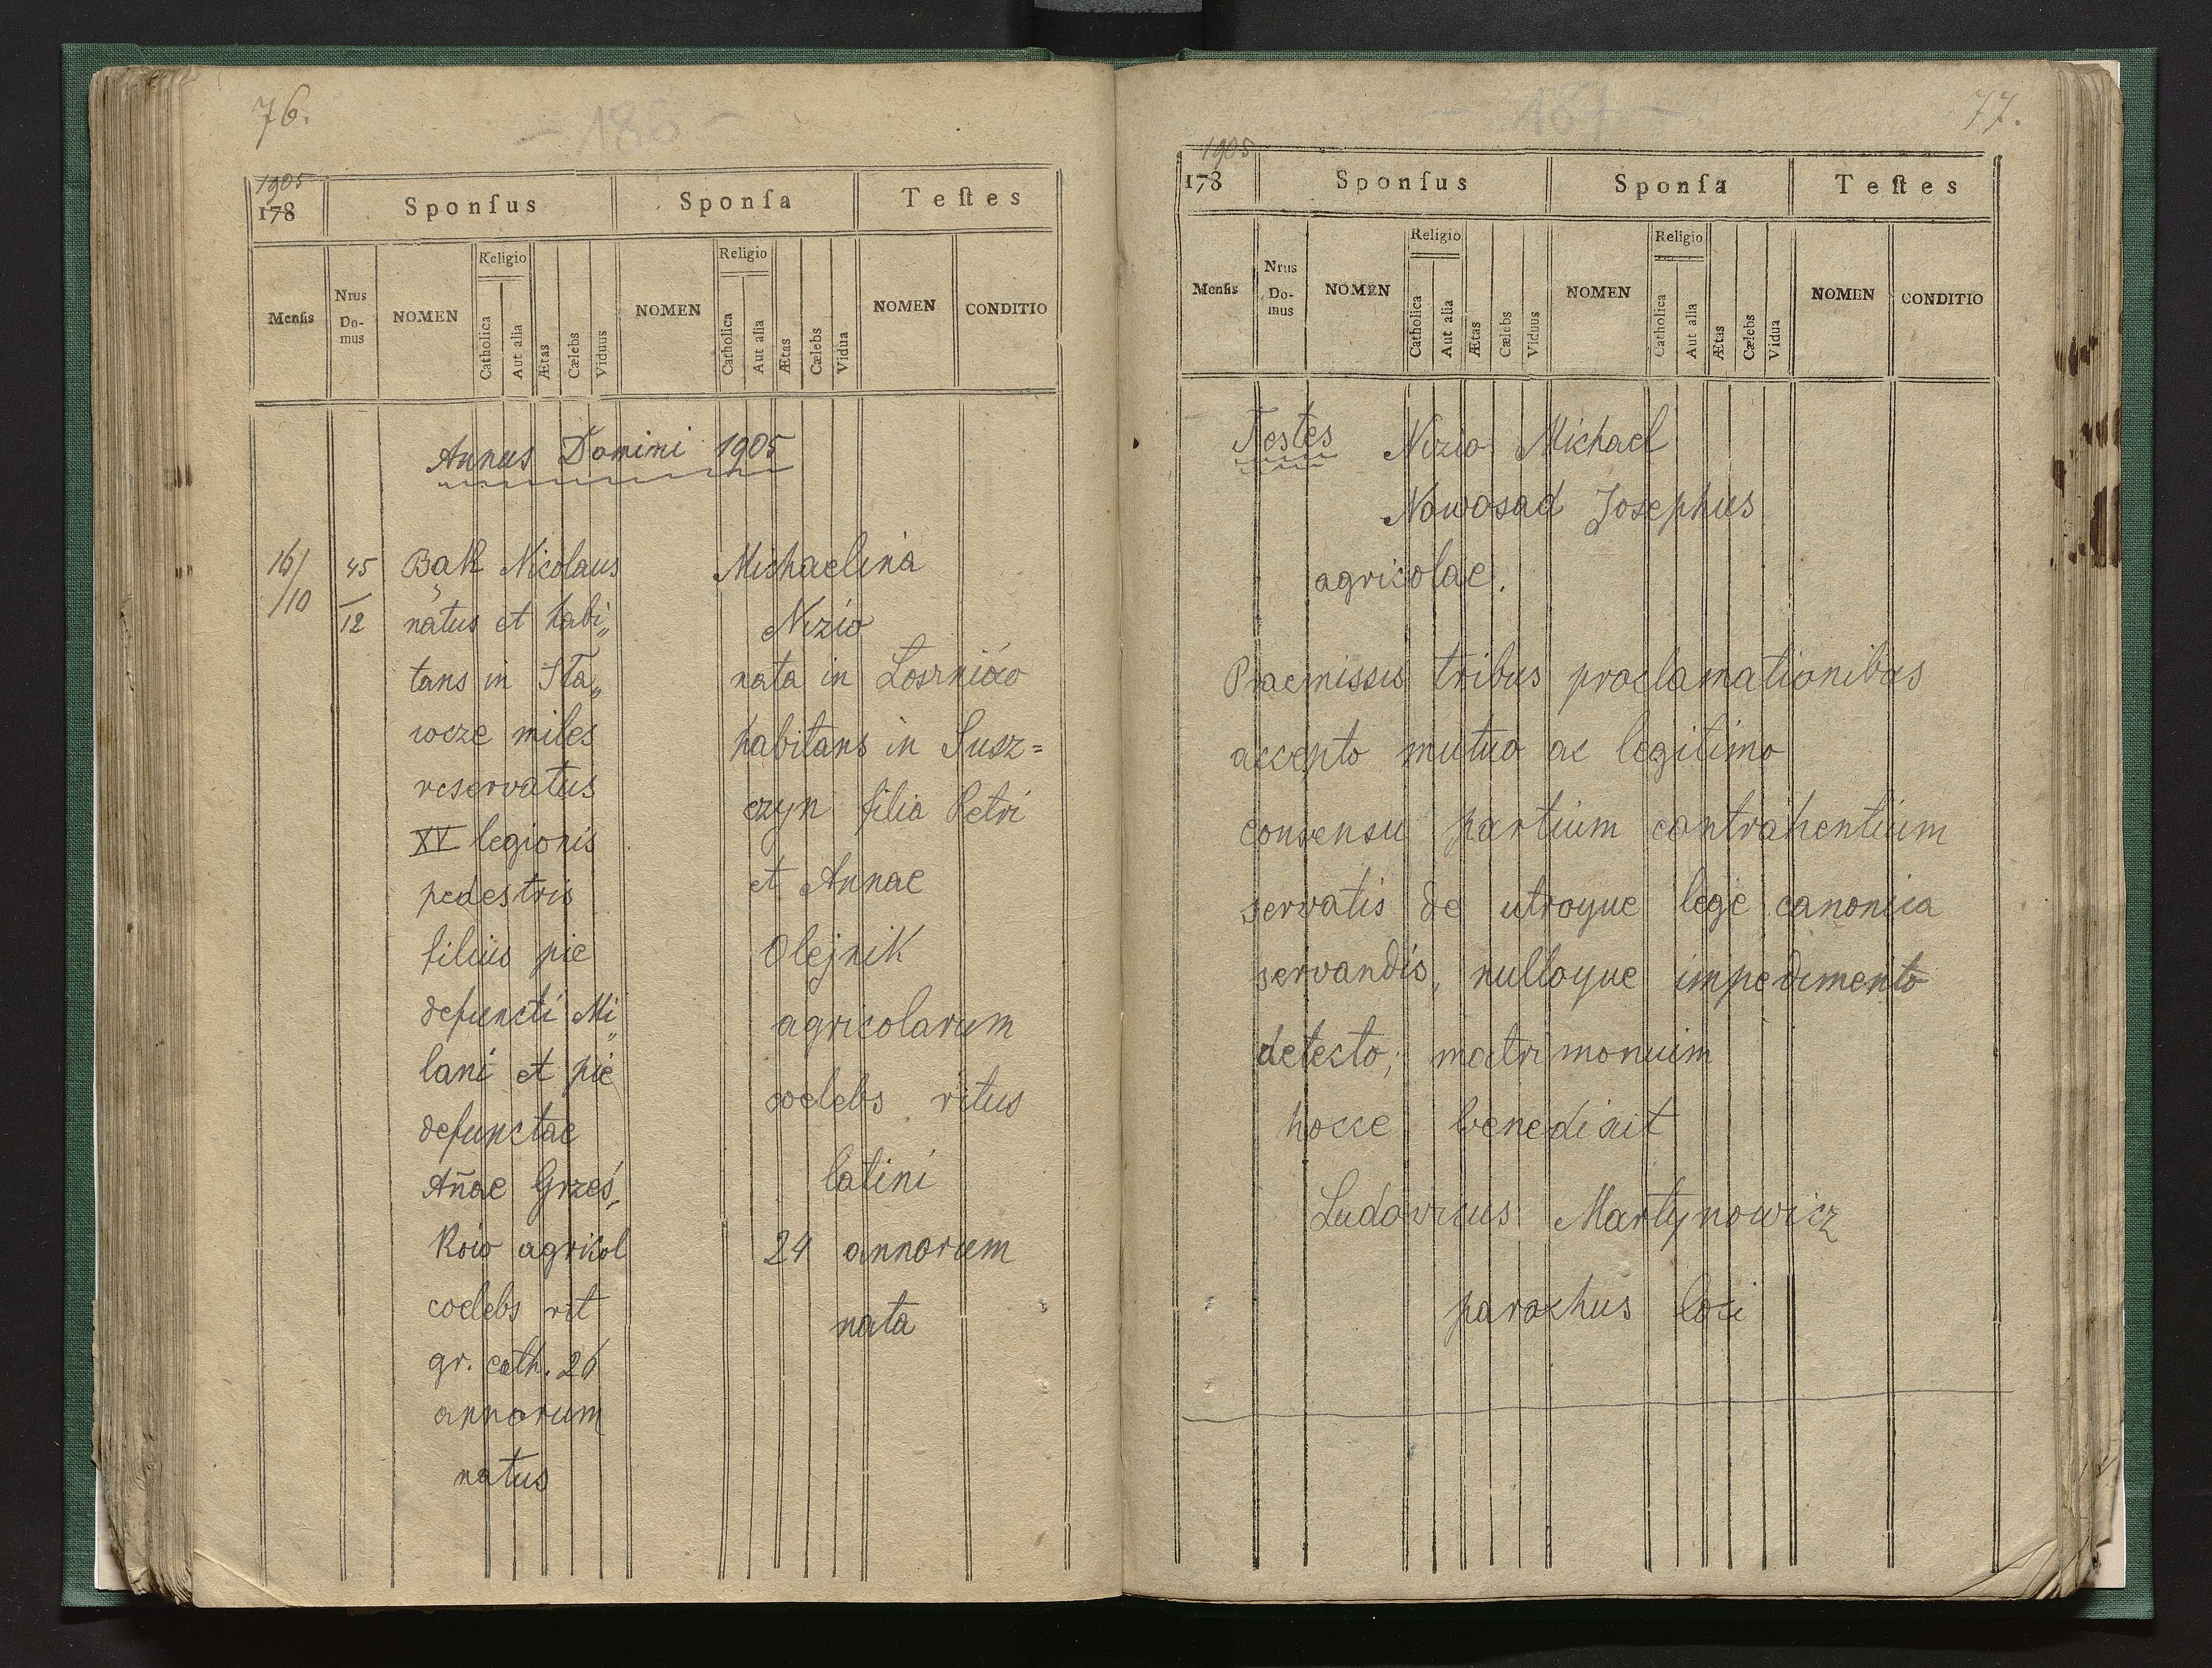 76.
- 186 -
1905
178
Sponſus
Sponſa
Teſtes
Menſis
Nrus Do-mus
NOMEN
Religio
Catholica
Aut alia
Ætas
Cælebs
Viduus
NOMEN
Religio
Catholica
Aut alia
Ætas
Cælebs
Vidua
NOMEN
CONDITIO
Annus Domini 1905
16/
/10
45
12
Bąk Nicolaus
natus et habi„
tans in Sta„
wcze miles
reservatus
XV legionis
pedestris
filius pie
defuncti Mi„
lani et pie
defunctae
Añae Grześ„
ków agricol
coelebs rit
gr. cath. 26
annorum
natus
Michaelina
Nizio
nata in Łosznićw
habitans in Susz=
czyn filia Petri
et Annae
Olejnik
agricolarum
coelebs ritus
latini
24 annorum
nata
- 187 -
77.
1905
178
Sponſus
Sponſa
Teſtes
Menſis
Nrus Do-mus
NOMEN
Religio
Catholica
Aut alia
Ætas
Cælebs
Viduus
NOMEN
Religio
Catholica
Aut alia
Ætas
Cælebs
Vidua
NOMEN
CONDITIO
Testes Nizio Michael
Nowosad Josephus
agricolae.
Praemissis tribus proclamationibus
accepto mutuo ac legitimo
consensu partium contrahentium
servatis de utroque lege canonica
servandis, nulloque impedimento
detecto; matrimonium
hocce benedixit
Ludovicus Martynowicz
parochus loci